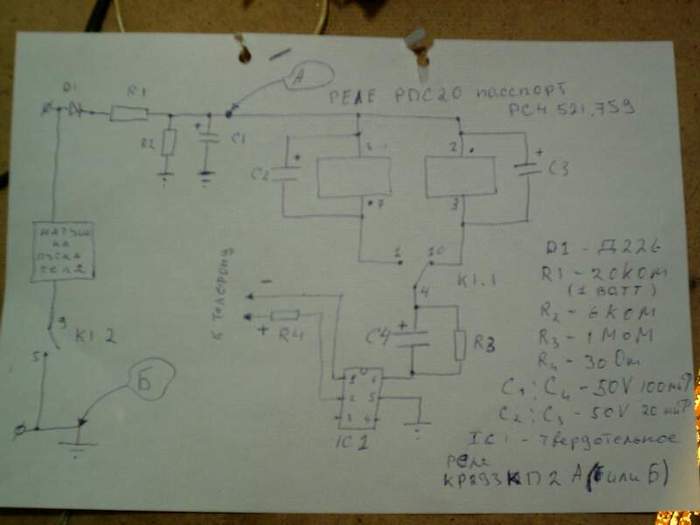 А
РЕЛЕ РПС20 паспорт
РС4 521,759
D1
R1
R2
C1
C2
C3
2
7
3
1
10
K1.1
4
пуска
K1.2
9
5
Б
К телефону
R4
C4
R3
1
2
3
6
5
4
IC1
D1 - Д226
R1 - 20КОМ
(1 ВАТТ)
R2 - 6КОМ
R3 - 1МОМ
R4 - 30 Ом
C1; C4 - 50V 100мкФ
C2; C3 - 50V 20мкФ
IC1 - твердотельное
реле
КР293КП2 А(или Б)